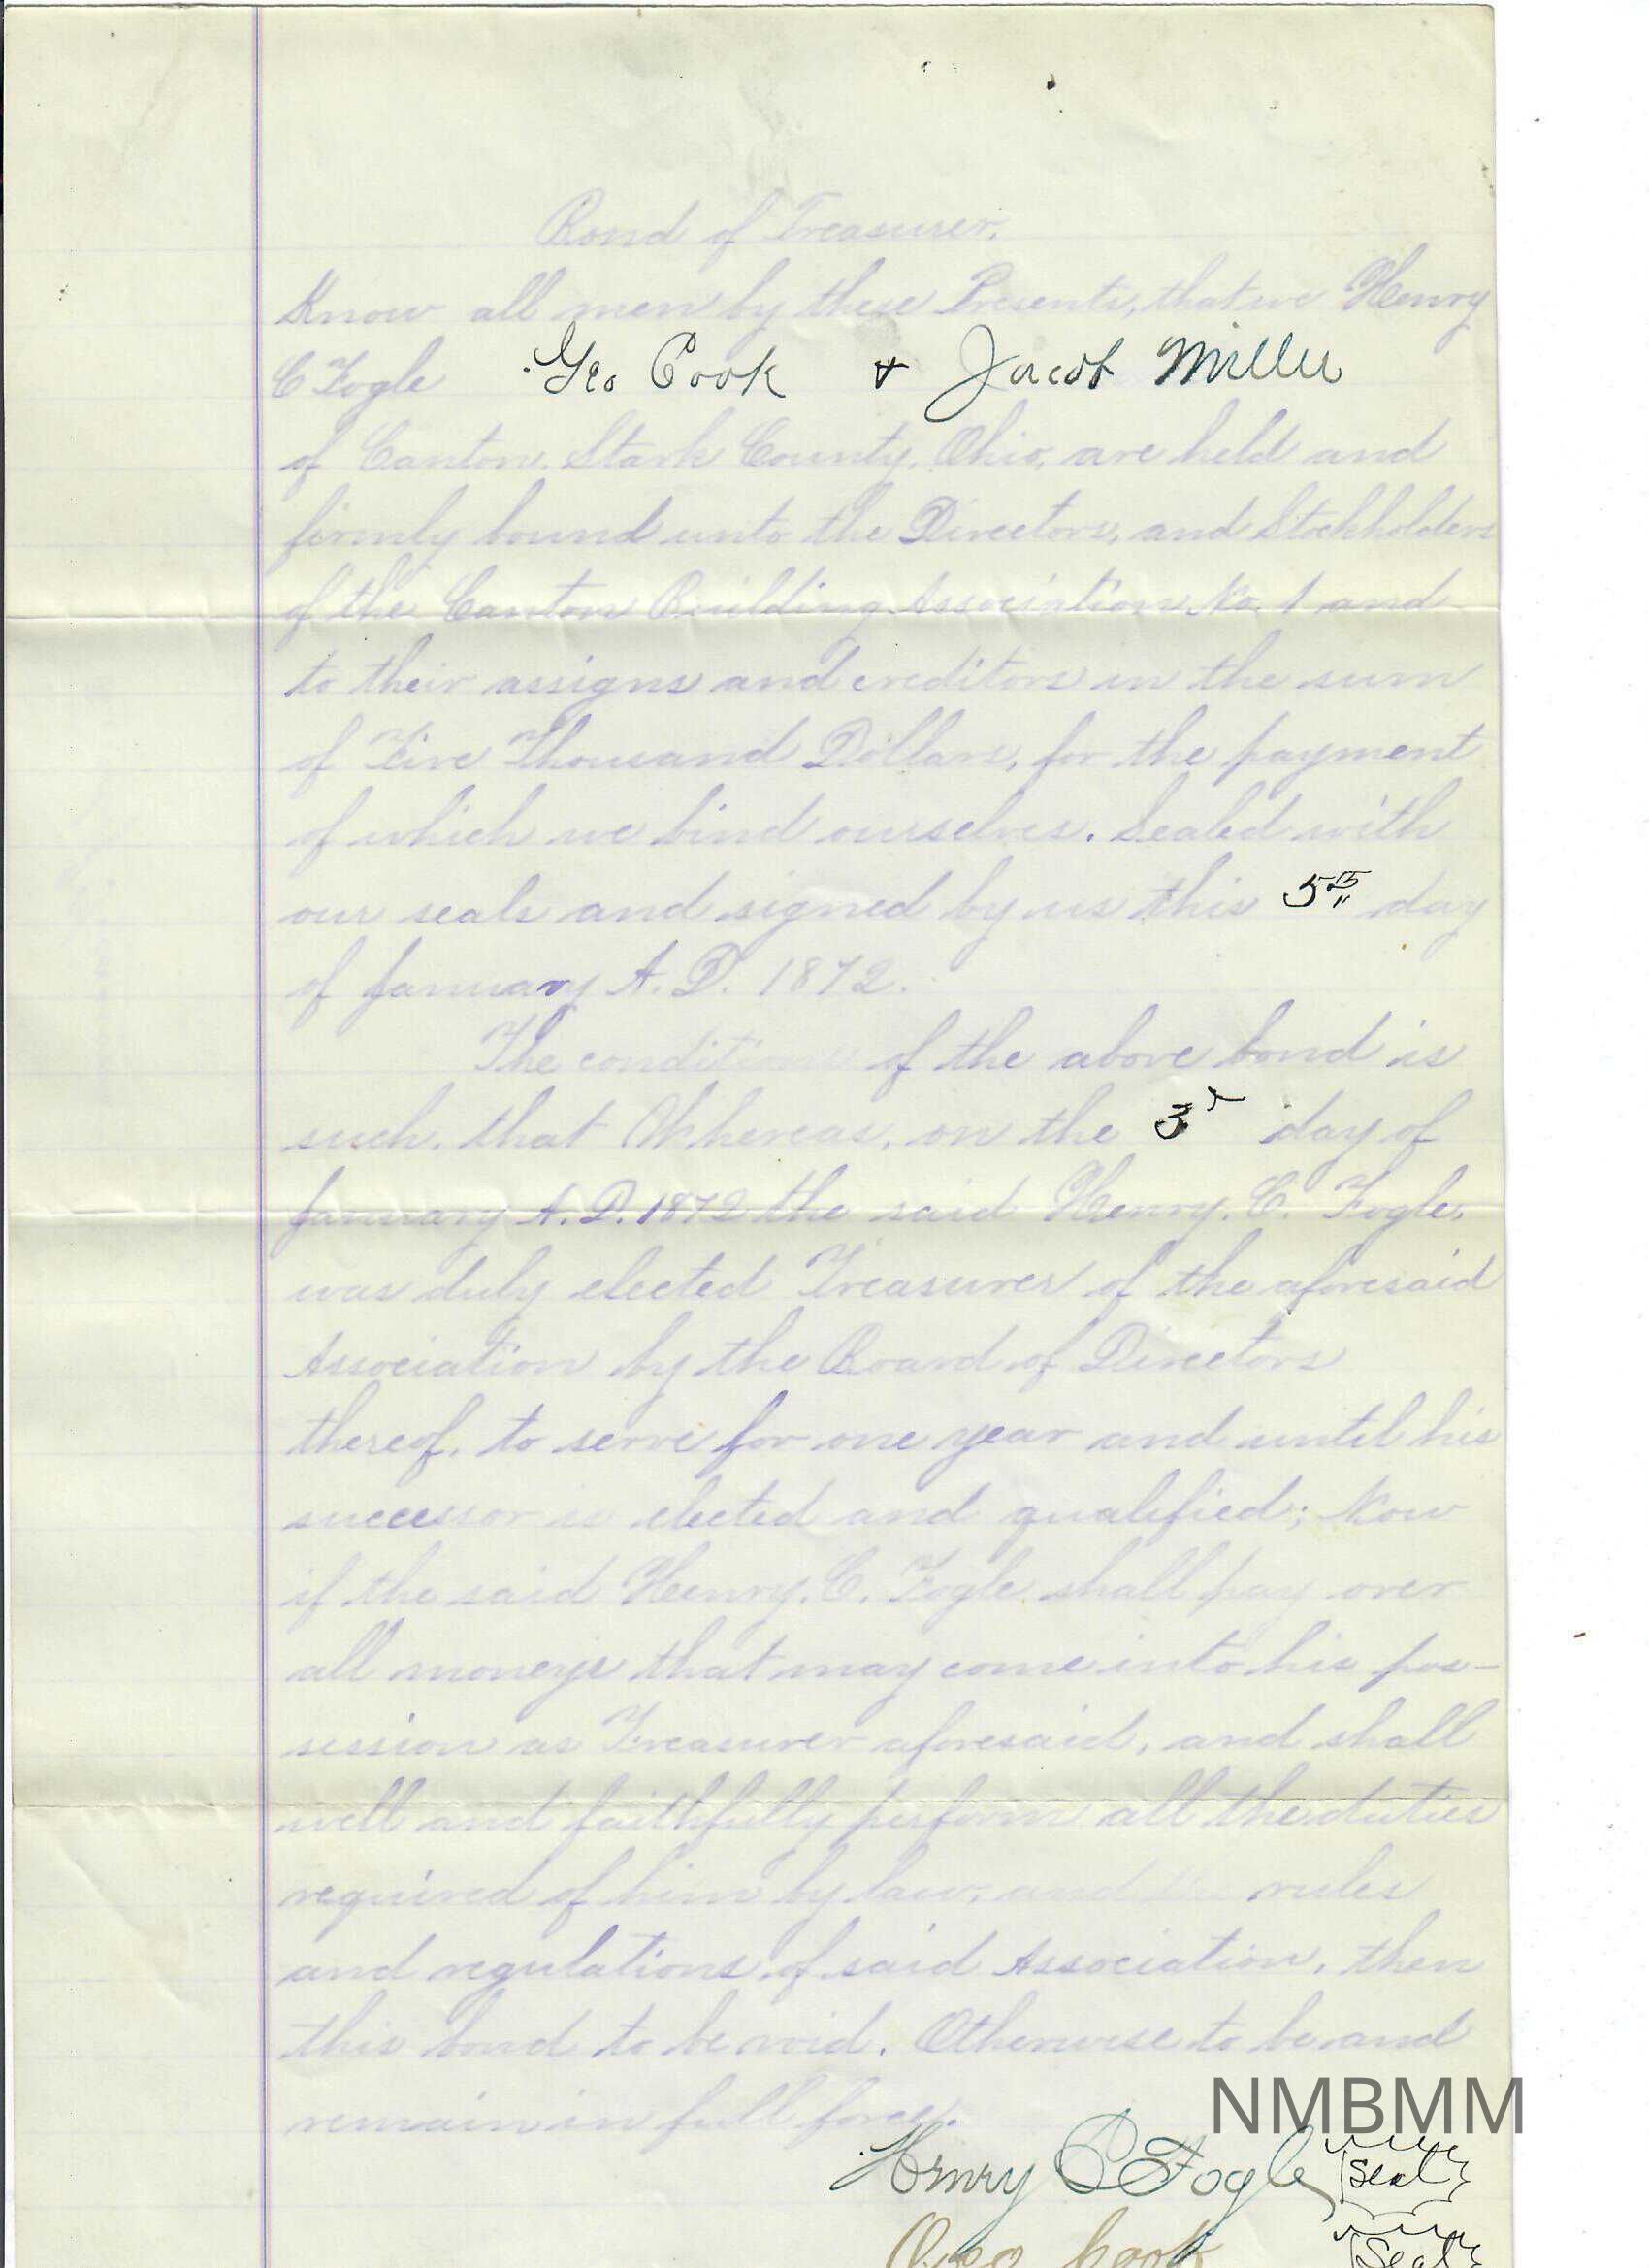 Bond of Treasurer.
Know all men by these Presents, that we Henry
C Fogle Geo Cook & Jacob Miller
of Canton, Stark County, Ohio, are held and
firmly bound unto the Directors, and Stockholders
of the Canton Building Association No. 1 and
to their assigns and creditors in the sum
of Five Thousand Dollars, for the payment
of which we bind ourselves. Sealed with
our seals and signed by us this 5th day
of January A. D. 1872.
The conditions of the above bond is
such, that Whereas, on the 3d day of
January A. D. 1872 the said Henry. C. Fogle,
was duly elected Treasurer of the aforesaid
Association by the Board of Directors
thereof, to serve for one year and until his
successor is elected and qualified; Now
if the said Henry. C. Fogle shall pay over
all moneys that may come into his pos-
session as Treasurer aforesaid, and shall
well and faithfully perform all the duties
required of him by law, and the rules
and regulations of said Association, then
this bond to be void. Otherwise to be and
remain in full force.
NMBMM
Henry C Fogle Seal
Geo Cook Seal